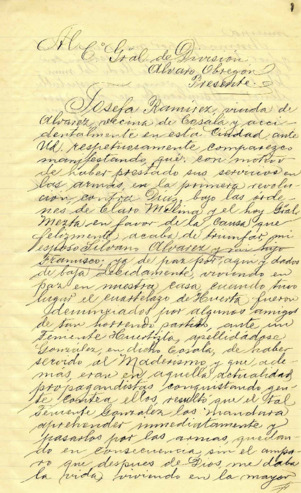 Al
C. Gral. de División
Alvaro Obregon
Presente.
Josefa Ramirez, viuda de
Alvarez, vecina de Cosala y acci-
dentalmente en esta Ciudad, ante
Ud. respetuosamente comparezco
manifestando que: con motivo
de haber prestado sus servicios en
los armas, en la primera revolu-
ción contra Diaz, bajo las orde-
nes de Claro Molina y el hoy Gral.
Mesta en favor de la Causa que
felizmente acaba de triunfar, mi
esposo Silvano Alvarez y mi hijo
Francisco, ya de paz por aquí y dados
de baja debidamente, viviendo en
paz en nuestra casa, cuando tuvo
lugar el cuartelazo de Huerta fueron
denunciados por algunos amigos
de tan horrendo partido, ante un
Teniente Huertista, apellidadose
Gonzalez, en dicho Cosala, de haber
servido al Maderismo y que ade-
más eran en aquella actualidad
propagandistas conquistando gen-
te contra ellos, resultó que el tal
Teniente Gonzalez los mandara
aprehender inmediatamente y
pasarlos por las armas, quedan-
do en consecuencia sin el ampa-
ro que despues de Dios, me daba
la vida, viviendo en la mayor